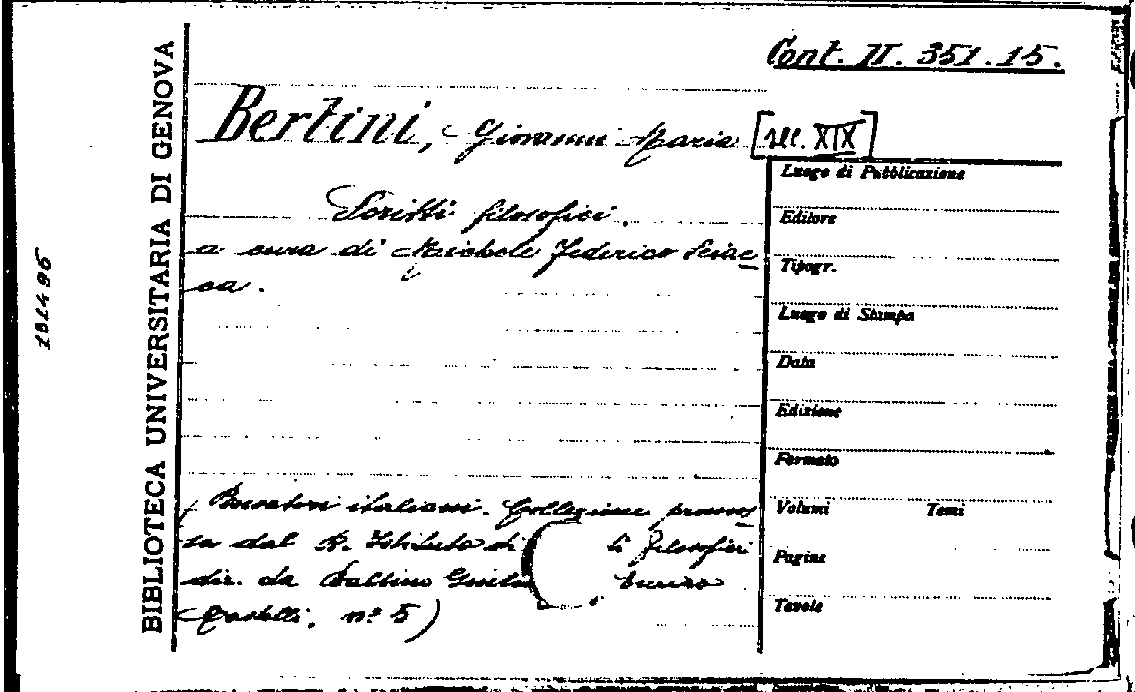 Cont. II. 351.15.
Bertini, Giovanni Maria [sec. XIX]
Scritti filosofici.
a cura di Michele Federico Sciac
ca.
(Pensatori italiani. Collezione promos
sa dal R. Istituto di di filosofici
dir. da Balbino Giulia Enrico
Castelli, n° 5)
BIBLIOTECA UNIVERSITARIA DI GENOVA
182495
Luogo di Pubblicazione
Editore
Tipogr.
Luogo di Stampa
Data
Edizione
Formato
Volumi Tomi
Pagine
Tavole